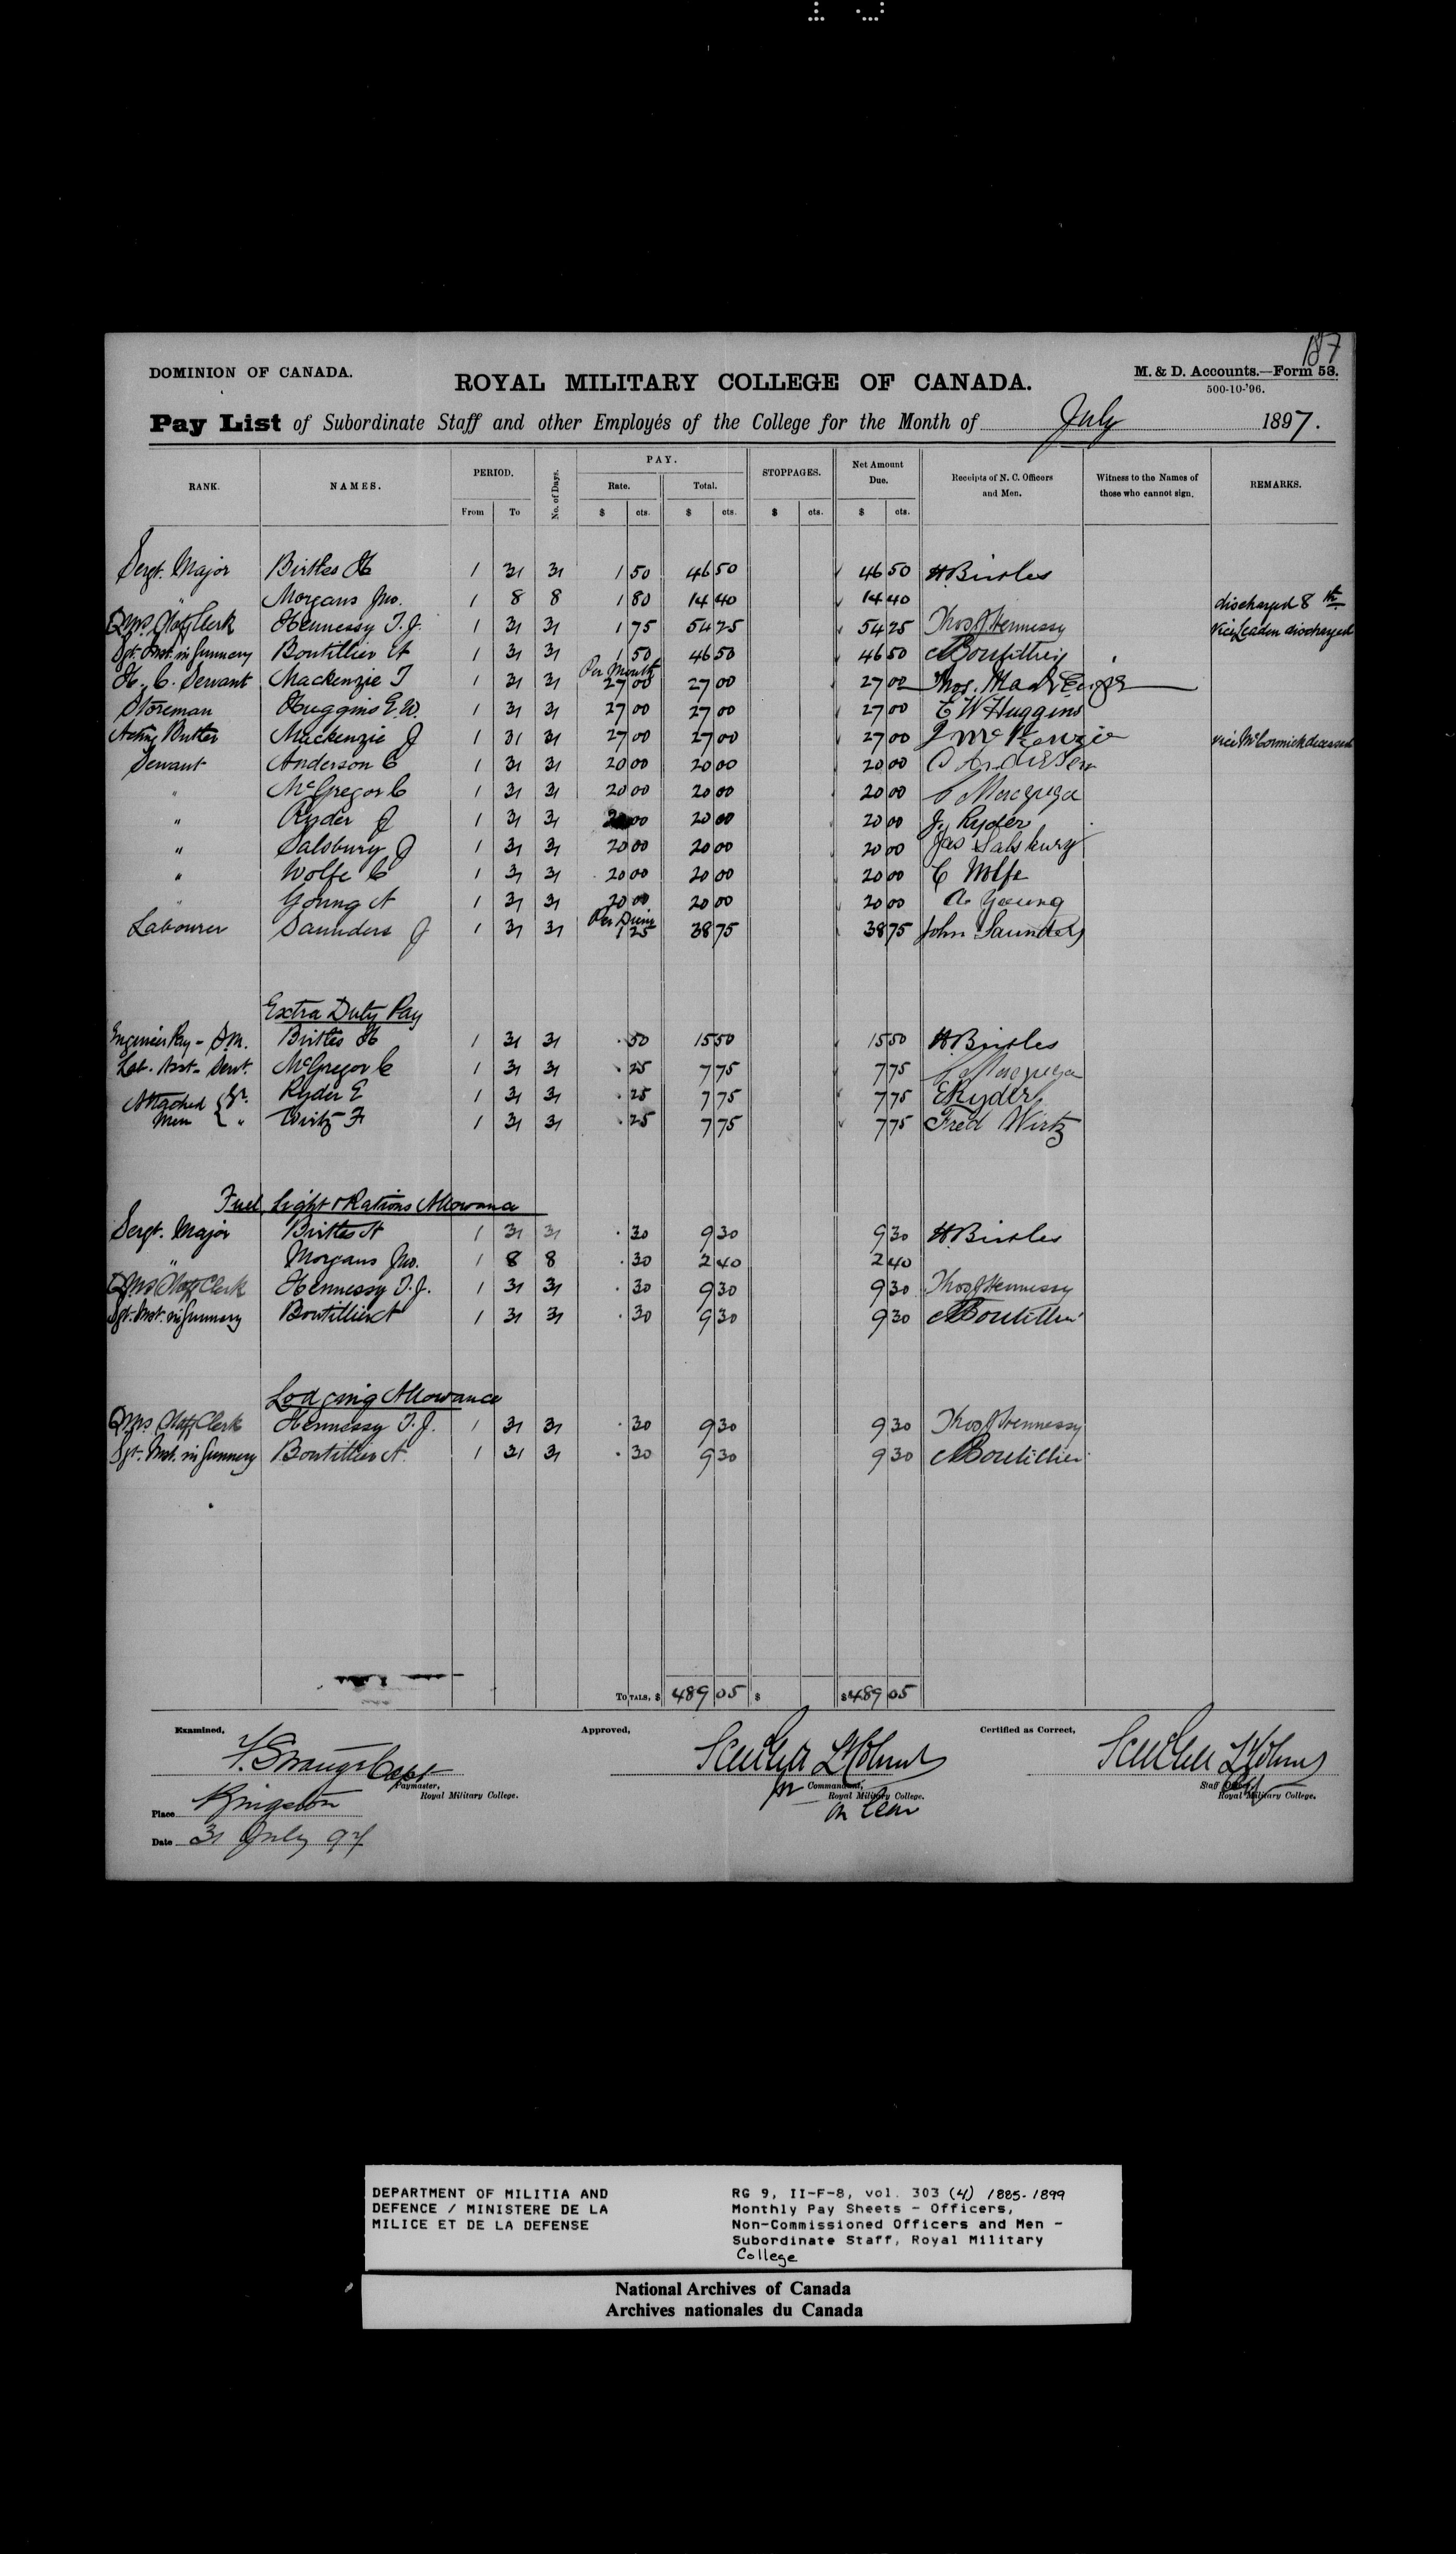 187
DOMINION OF CANADA.
ROYAL MILITARY COLLEGE OF CANADA.
M. & D. Accounts.—Form 53.
500-10-'96.
Pay List of Subordinate Staff and other Employés of the College for the Month of July 1897.
RANK. NAMES. PERIOD. From To No. of Days. PAY. Rate. $ cts. Total. $ cts. STOPPAGES. $ cts. Net Amount Due. $ cts. Receipts of N. C. Officers and Men. Witness to the Names of those who cannot sign. REMARKS.
Sergt. Major Birtles H 1 31 31 1 50 46 50 46 50 H. Birtles
" Morgans Jno. 1 8 8 1 80 14 40 14 40 discharged 8th
QMS Staff Clerk Hennessy T. J. 1 31 31 1 75 54 25 54 25 Thos J Hennessy vice Leaden discharged
Sgt. Inst. in Gunnery Boutillier A 1 31 31 1 50 46 50 46 50 A Boutillier
Per Month
H. C. Servant Mackenzie T 1 31 31 27 00 27 00 27 00 Thos. MacKenzie
Storeman Huggins E. W. 1 31 31 27 00 27 00 27 00 E W Huggins
Acting Butler Mackenzie J 1 31 31 27 00 27 00 27 00 J McKenzie vice McCormick deceased
Servant Anderson C 1 31 31 20 00 20 00 20 00 C Anderson
" McGregor C 1 31 31 20 00 20 00 20 00 C Macgregor
" Ryder J 1 31 31 20 00 20 00 20 00 J. Ryder
" Salsbury J 1 31 31 20 00 20 00 20 00 Jas Salsbury
" Wolfe C 1 31 31 20 00 20 00 20 00 C Wolfe
" Young A 1 31 31 20 00 20 00 20 00 A Young
Per Diem
Labourer Saunders J 1 31 31 1 25 38 75 38 75 John Saunders
Extra Duty Pay
Engineer Pay - S.M. Birtles H 1 31 31 . 50 15 50 15 50 H. Birtles
Lab. Asst - Servt. McGregor C 1 31 31 . 25 7 75 7 75 C Macgregor
Attached Men { Gr. Ryder E 1 31 31 . 25 7 75 7 75 E Ryder
" Wirtz F 1 31 31 . 25 7 75 7 75 Fred Wirtz
Fuel, Light & Rations Allowance
Sergt. Major Birtles H 1 31 31 . 30 9 30 9 30 H. Birtles
" Morgans Jno. 1 8 8 . 30 2 40 2 40
QMS Staff Clerk Hennessy T. J. 1 31 31 . 30 9 30 9 30 Thos J Hennessy
Sgt. Inst. in Gunnery Boutillier A 1 31 31 . 30 9 30 9 30 A Boutillier
Lodging Allowance
QMS Staff Clerk Hennessy T. J. 1 31 31 . 30 9 30 9 30 Thos J Hennessy
Sgt. Inst. in Gunnery Boutillier A 1 31 31 . 30 9 30 9 30 A Boutillier
TOTALS, $ 489 05 $ $ 489 05
Examined, Approved, Certified as Correct,
Capt
Paymaster, Royal Military College.
for Commandant, Royal Military College.
on leave
Staff Officer, Royal Military College.
Place Kingston
Date 31 July 97
DEPARTMENT OF MILITIA AND
DEFENCE / MINISTERE DE LA
MILICE ET DE LA DEFENSE
RG 9, II-F-8, vol. 303 (4) 1885-1899
Monthly Pay Sheets - Officers,
Non-Commissioned Officers and Men -
Subordinate Staff, Royal Military
College
National Archives of Canada
Archives nationales du Canada